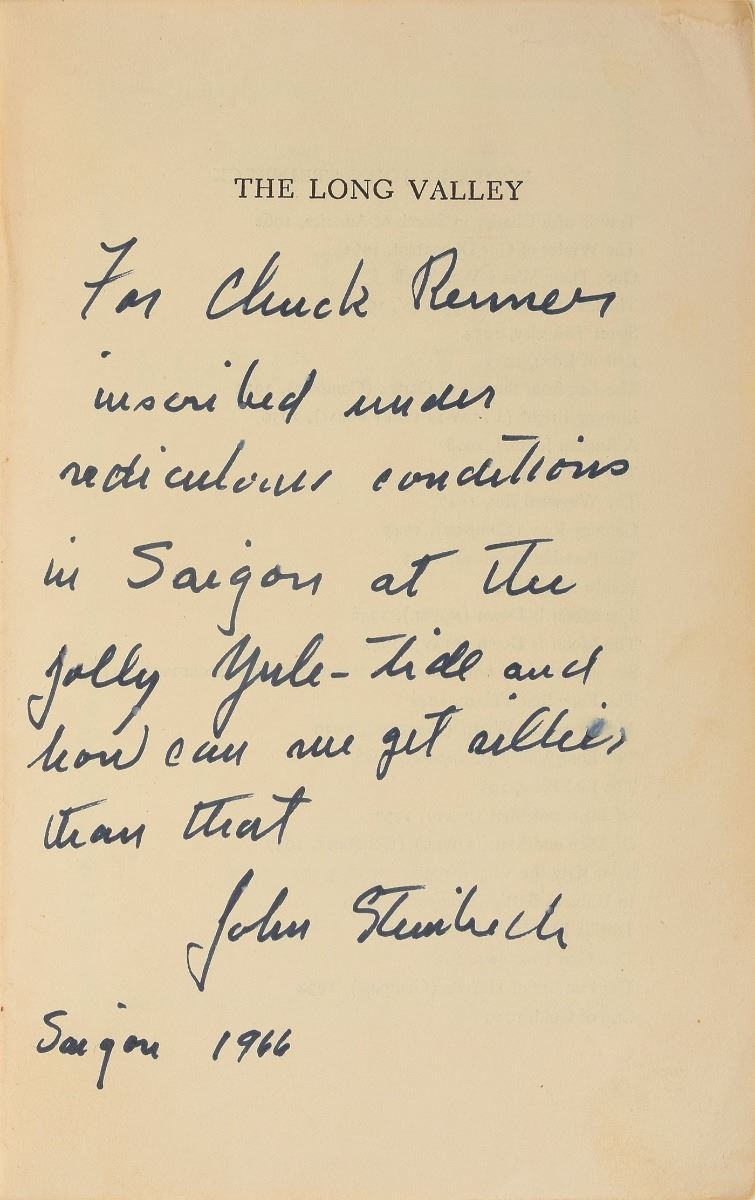 THE LONG VALLEY
For Chuck Renner
inscribed under
rediculous conditions
in Saigon at the
jolly Yule-tide and
how can we get sillier
than that
John Steinbeck
Saigon 1966